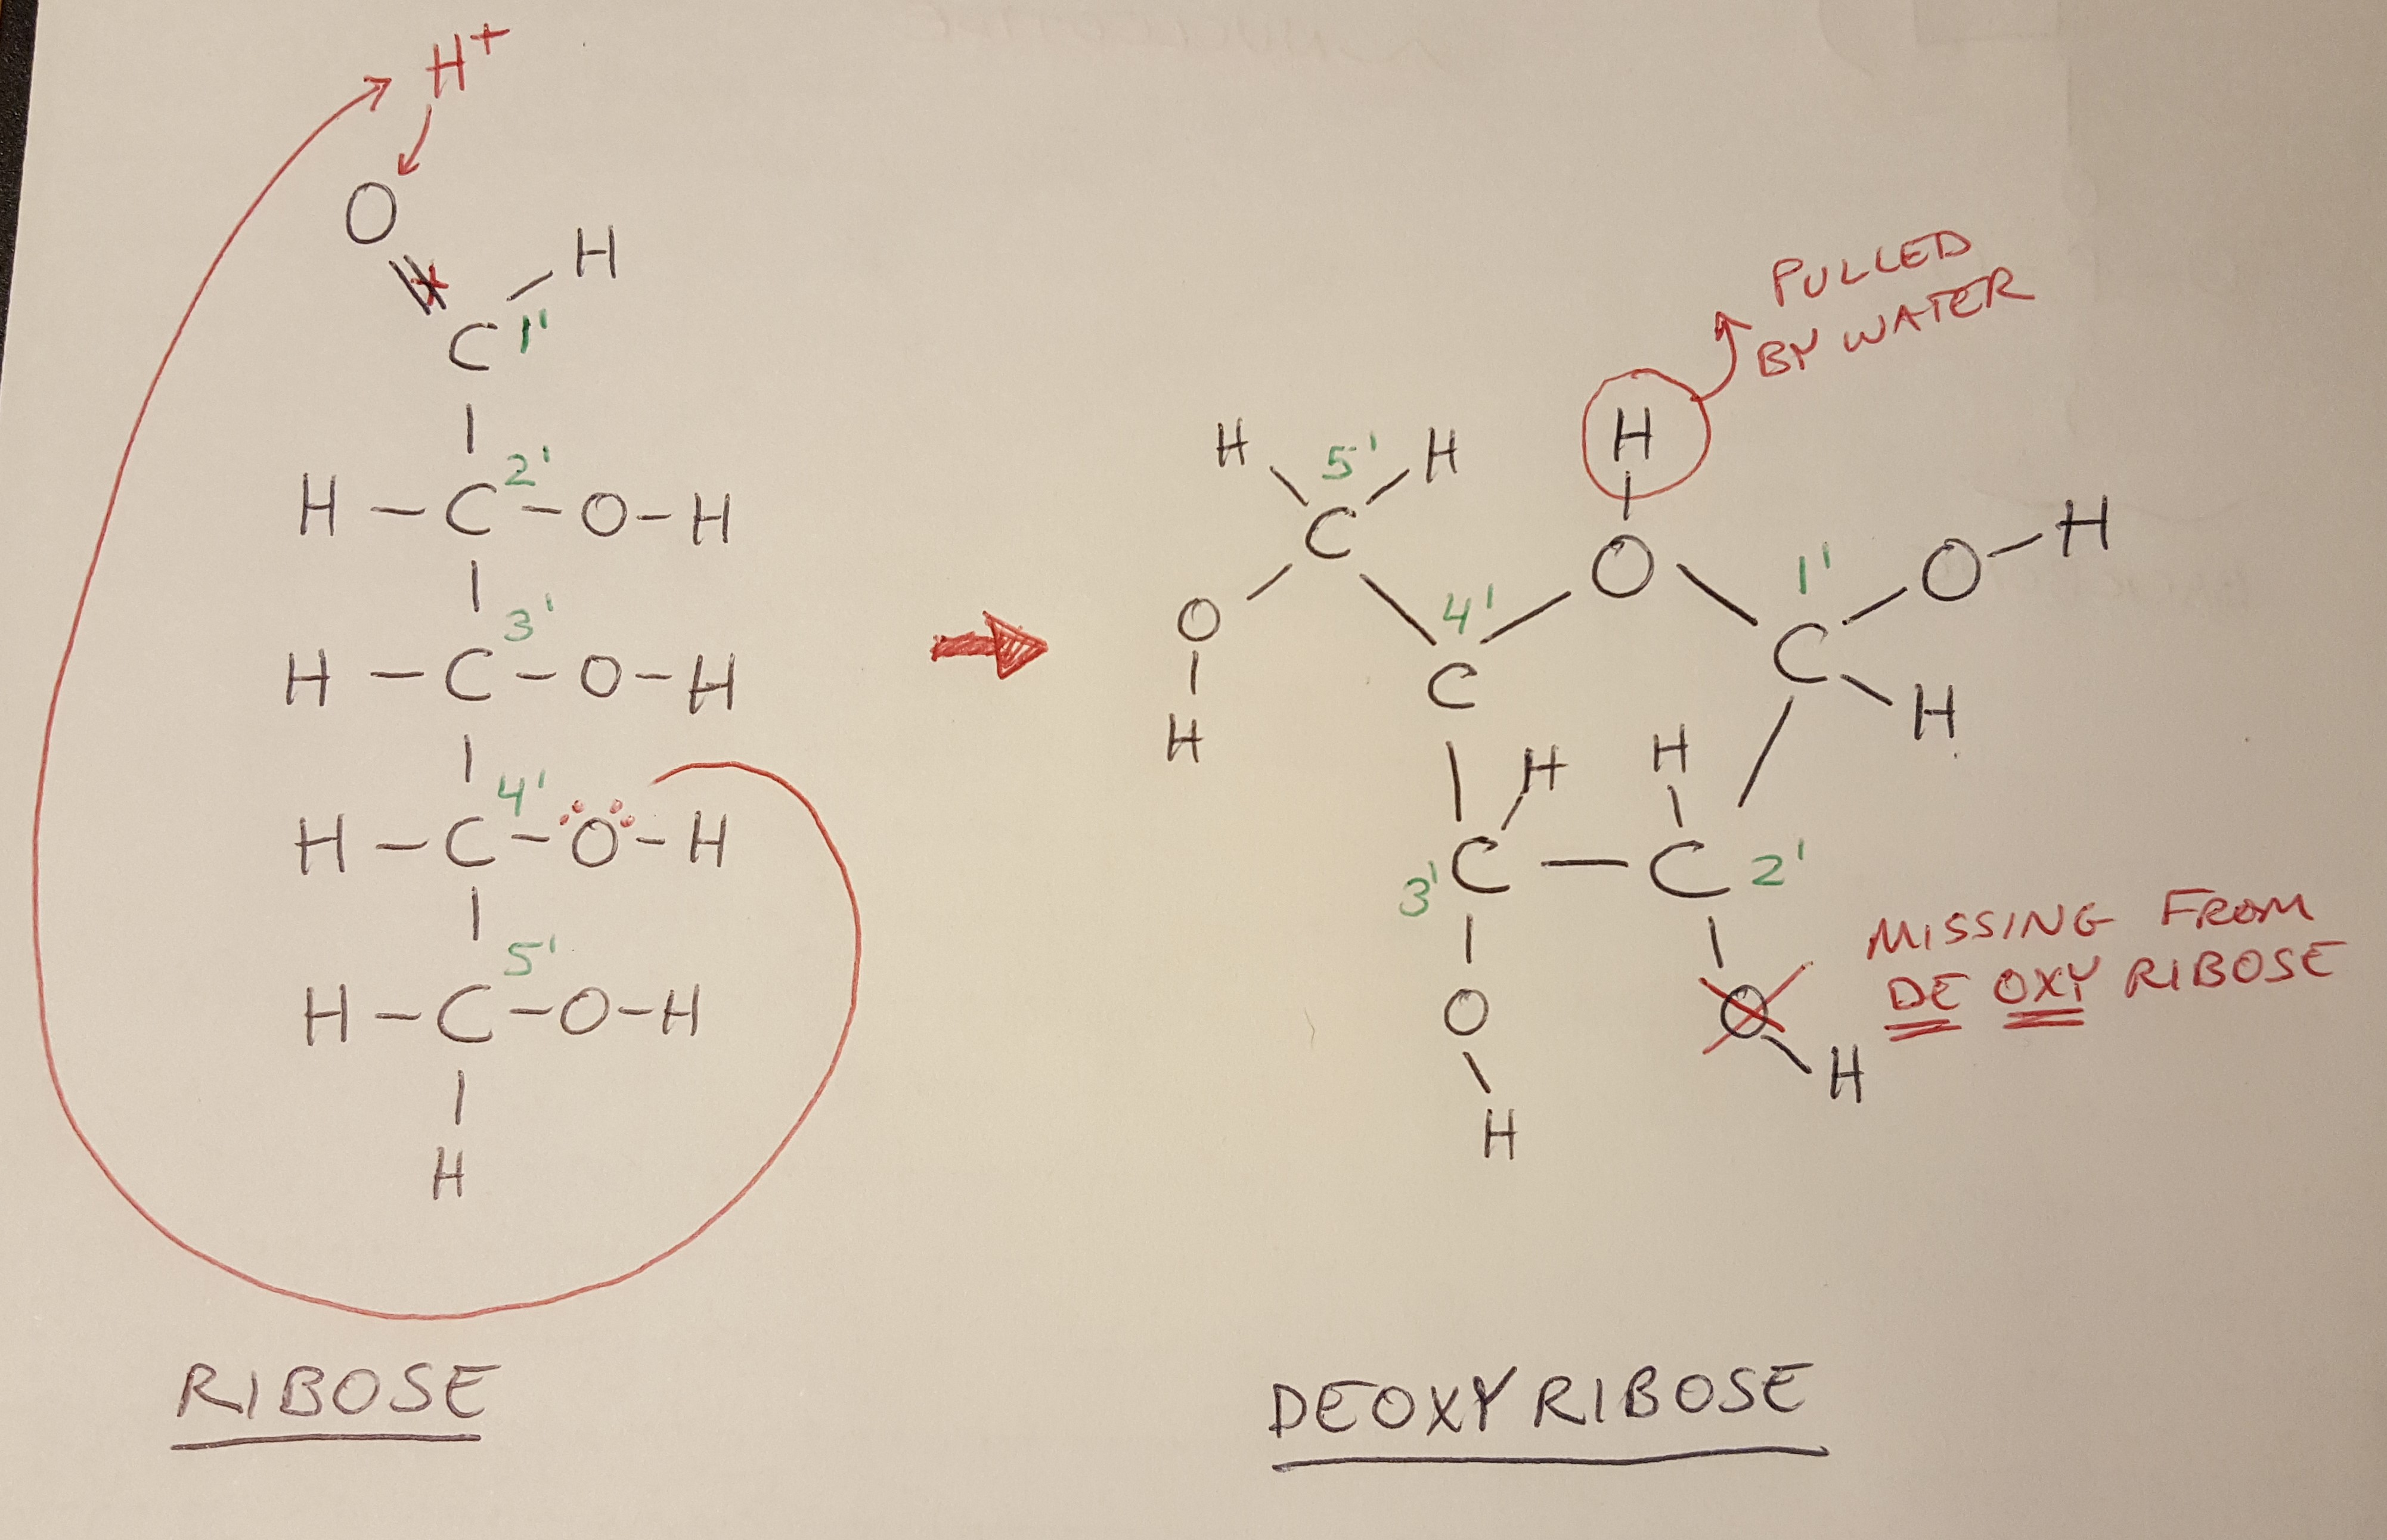 H+
O
H
C 1'
2'
H - C - O - H
3'
H - C - O - H
4'
H - C - O - H
5'
H - C - O - H
H
RIBOSE
PULLED
BY WATER
H
H 5' H
C
O
H
4'
O
1'
O - H
C
C
H
H
H
3' C - C 2'
O
H
O
H
MISSING FROM
DE OXY RIBOSE
DEOXYRIBOSE